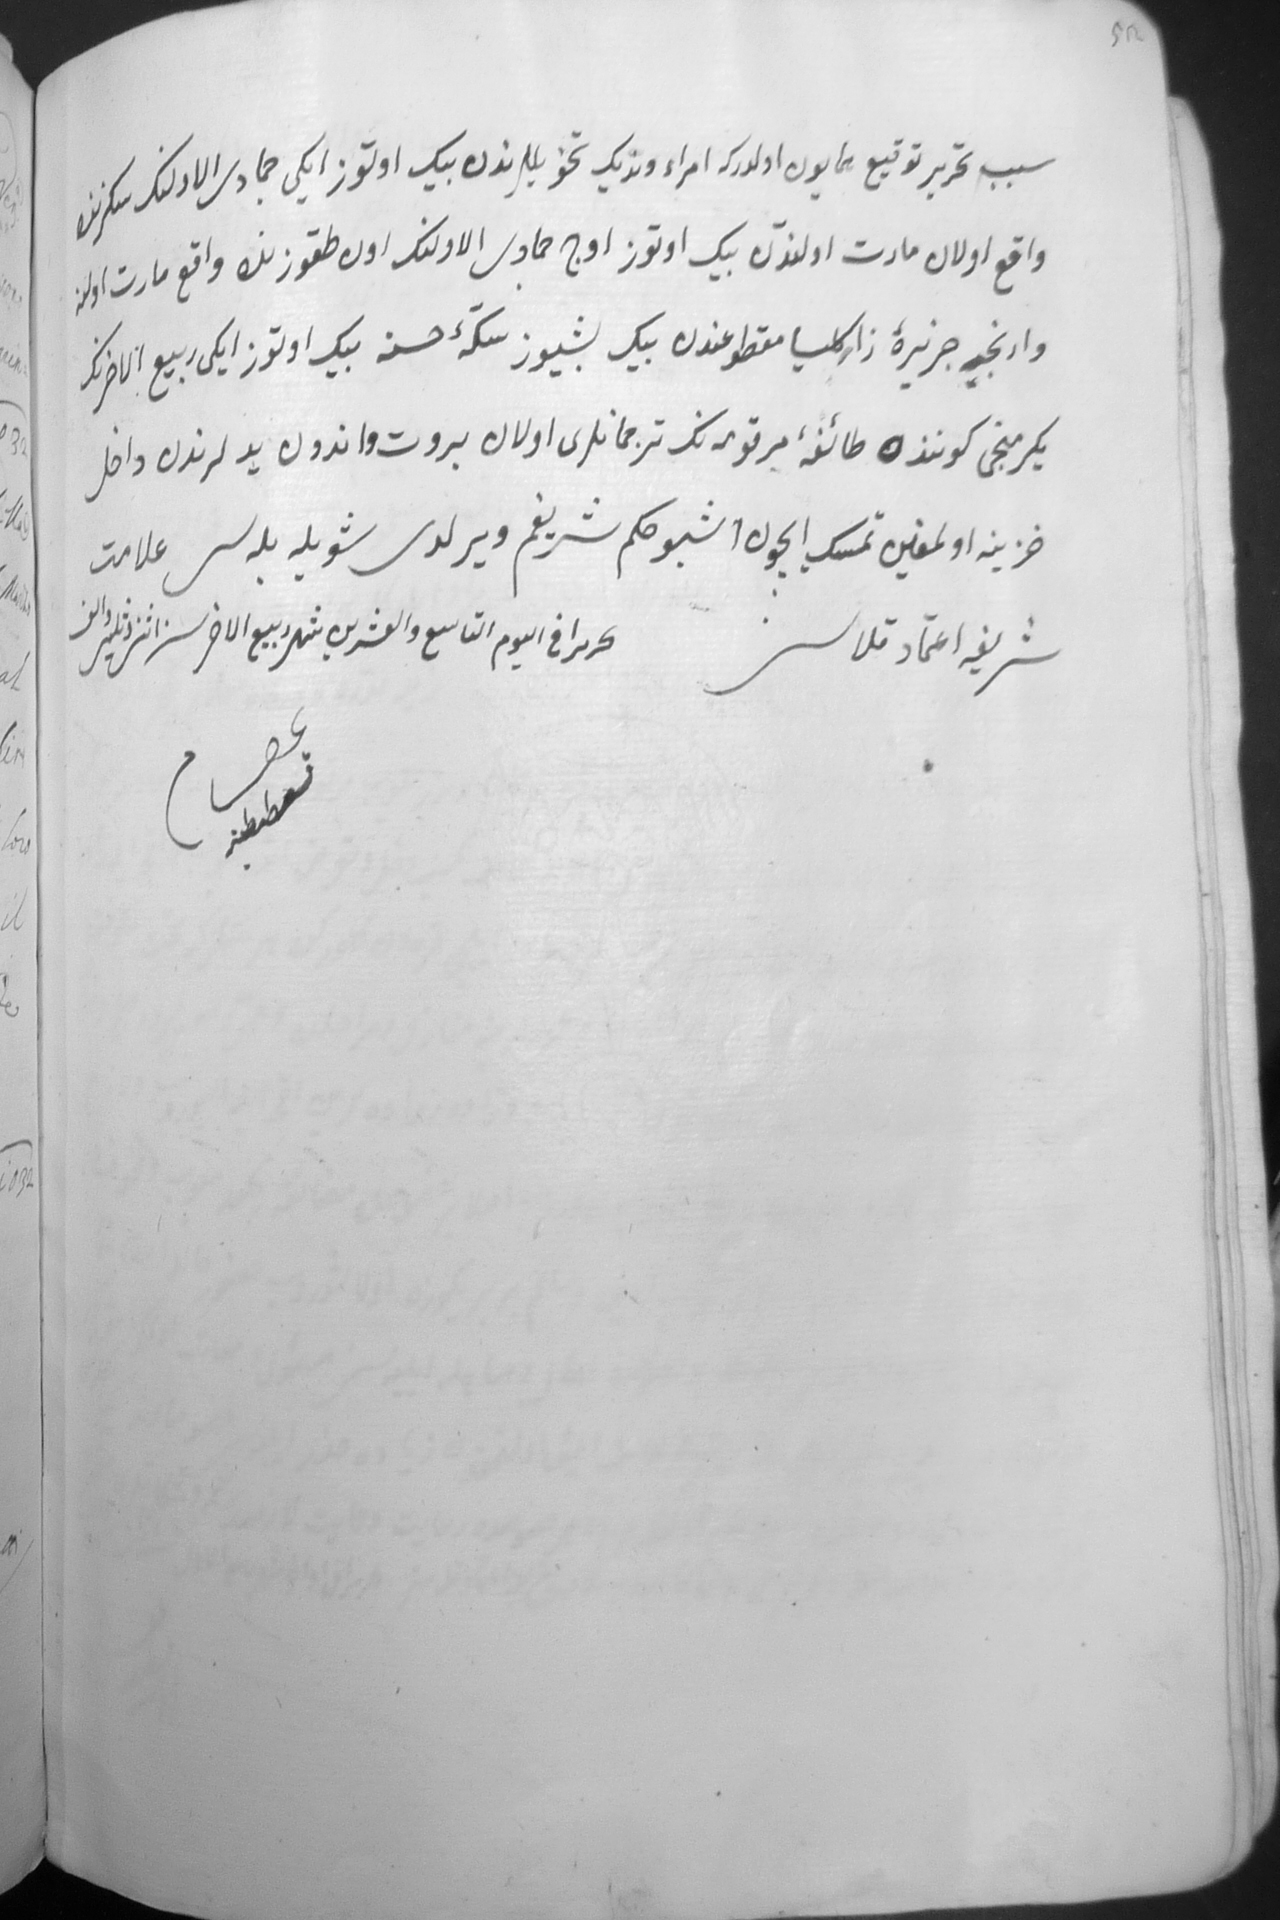 سبب تحریر توقیع همایون اولدرکه امراء وندیک تحویللرندن بیک اوتوز ایکی جمادی الاولنک سکزنده
واقع اولان مارت اولندن بیک اوتوز اوچ جمادی الاولنک اون طقوزنده واقع مارت اولنه
وارنجیه جزیرۀ زاکلیسا مقطوعندن بیک بشیوز سکۀ حسنه بیک اوتوز ایکی ربیع الاخرنک
یکرمنجی کوننده طائفۀ مرقومه نک ترجمانلری اولان بروت واندون یدلرندن داخل
خزینه اولمغین تمسک ایچون اشبو حکم شریفم ویرلدی شویله بله سز علامت
شریفه اعتماد قلاسز تحریرا فی الیوم التاسع والعشرین شهر ربیع الاخر سنه اثنی وثلثین والف
بمقام
قسطنطنیه